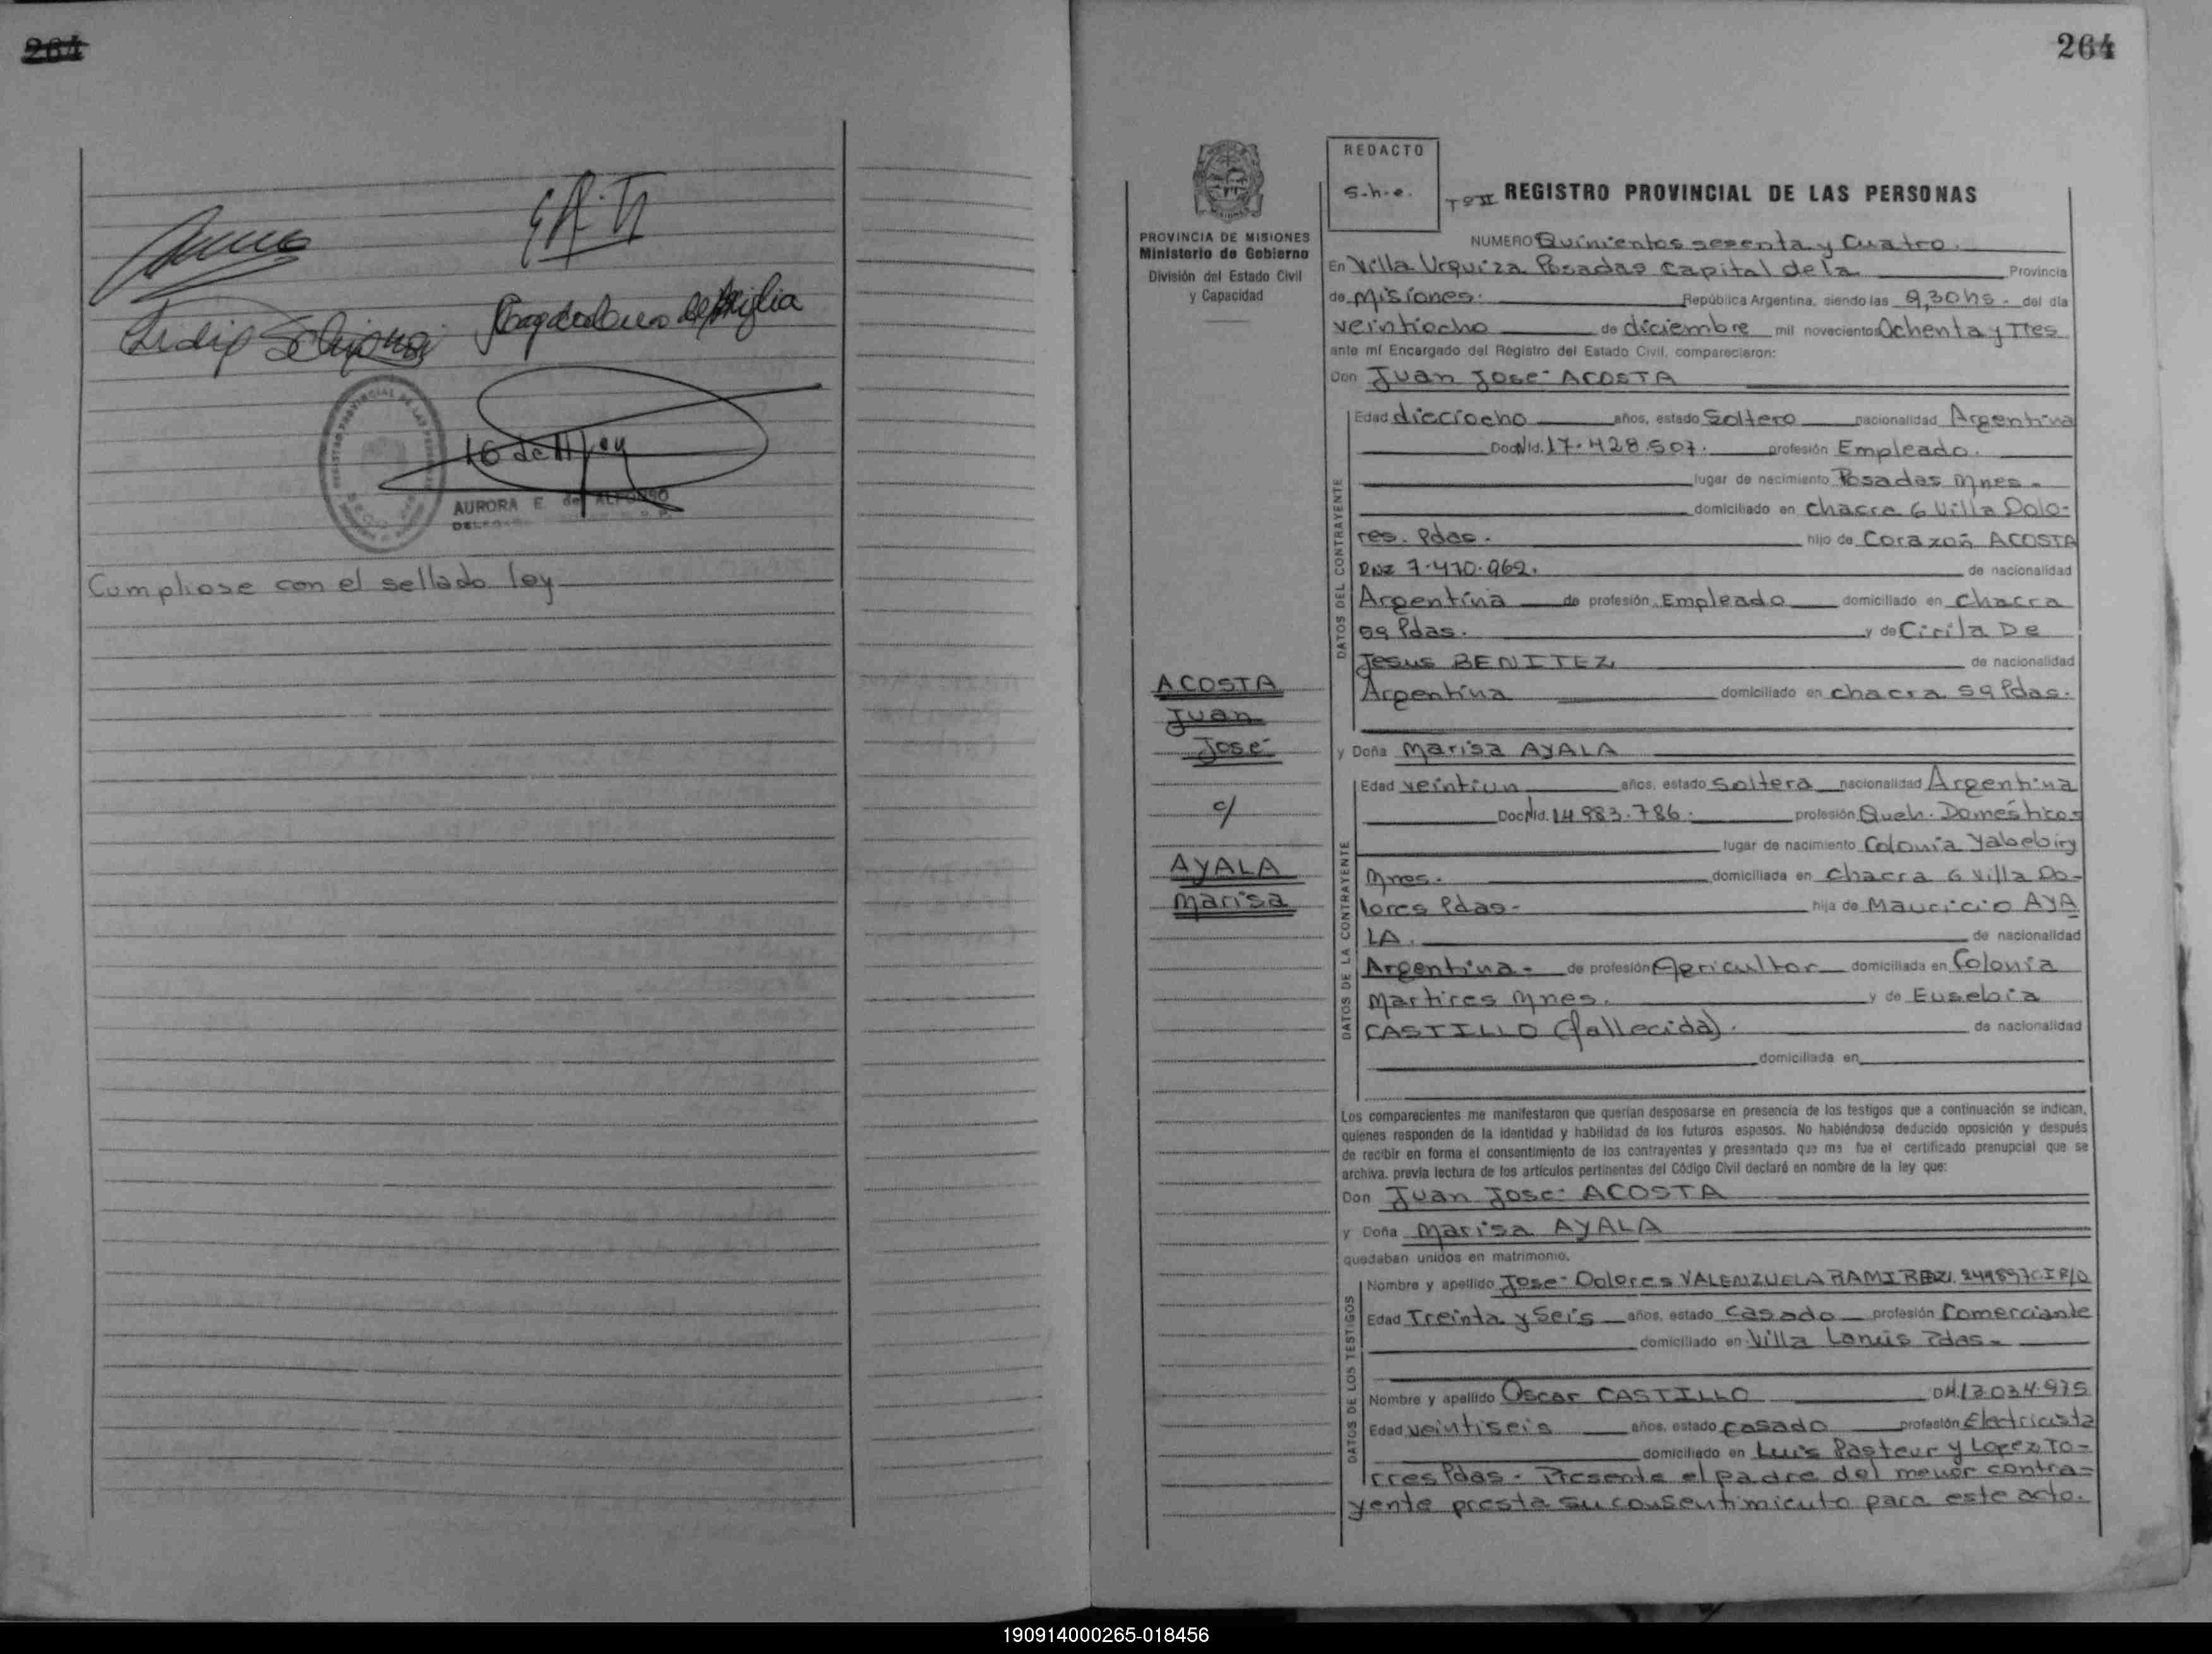 264
16 de 11/84
AURORA E. de ALFONSO
Cumpliose con el sellado ley
264
REDACTO
S.h.e.
PROVINCIA DE MISIONES
Ministerio de Gobierno
División del Estado Civil
y Capacidad
Tº II REGISTRO PROVINCIAL DE LAS PERSONAS
NUMERO Quinientos sesenta y Cuatro.
En Villa Urquiza Posadas Capital de la Provincia
de Misiones. República Argentina, siendo las 9,30 hs. del día
veintiocho de diciembre mil novecientos Ochenta y Tres
ante mí Encargado del Registro del Estado Civil, comparecieron:
Don Juan José ACOSTA
DATOS DEL CONTRAYENTE
Edad dieciocho años, estado Soltero nacionalidad Argentina
Doc. Nid. 17.428.507. profesión Empleado.
lugar de nacimiento Posadas Mnes.
domiciliado en chacra 6 Villa Dolo-
res. Pdas. hijo de Corazón ACOSTA
DNI 7.470.962. de nacionalidad
Argentina de profesión Empleado domiciliado en Chacra
59 Pdas. y de Cirila De
Jesus BENITEZ de nacionalidad
Argentina domiciliado en chacra 59 Pdas.
ACOSTA
Juan
José
c/
AYALA
Marisa
y Doña Marisa AYALA
DATOS DE LA CONTRAYENTE
Edad veintiun años, estado Soltera nacionalidad Argentina
Doc. Nid. 14.983.786. profesión Queh. Domésticos
lugar de nacimiento Colonia Yabebiry
Mnes. domiciliada en Chacra 6 Villa Do-
lores Pdas- hija de Mauricio AYA
LA. de nacionalidad
Argentina- de profesión Agricultor domiciliada en Colonia
Martires Mnes. y de Eusebia
CASTILLO (fallecida). de nacionalidad
domiciliada en
Los comparecientes me manifestaron que querían desposarse en presencia de los testigos que a continuación se indican,
quienes responden de la identidad y habilidad de los futuros esposos. No habiéndose deducido oposición y después
de recibir en forma el consentimiento de los contrayentes y presentado que me fue el certificado prenupcial que se
archiva, previa lectura de los artículos pertinentes del Código Civil declaré en nombre de la ley que:
Don Juan José ACOSTA
y Doña Marisa AYALA
quedaban unidos en matrimonio.
DATOS DE LOS TESTIGOS
Nombre y apellido José Dolores VALENZUELA RAMIREZ
Edad Treinta y Seis años, estado Casado profesión Comerciante
domiciliado en Villa Lanús Pdas-
Nombre y apellido Oscar CASTILLO DNI 13.034.975
Edad veintiseis años, estado casado profesión Electricista
domiciliado en Luis Pasteur y Lopez To-
rres Pdas- Presente el padre del menor contra-
yente presta su consentimiento para este acto.
190914000265-018456